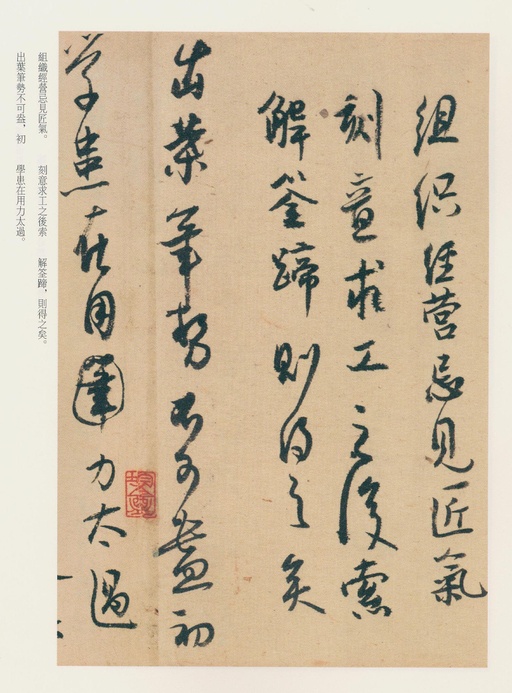 组织经营忌见匠氣
刻意求工之後索
解筌蹄则得之矣
出葉筆势不可盡初
学患在用筆力太過
組織經營忌見匠氣。　刻意求工之後索　解筌蹄，則得之矣。
出葉筆勢不可盡，初　學患在用力太過。